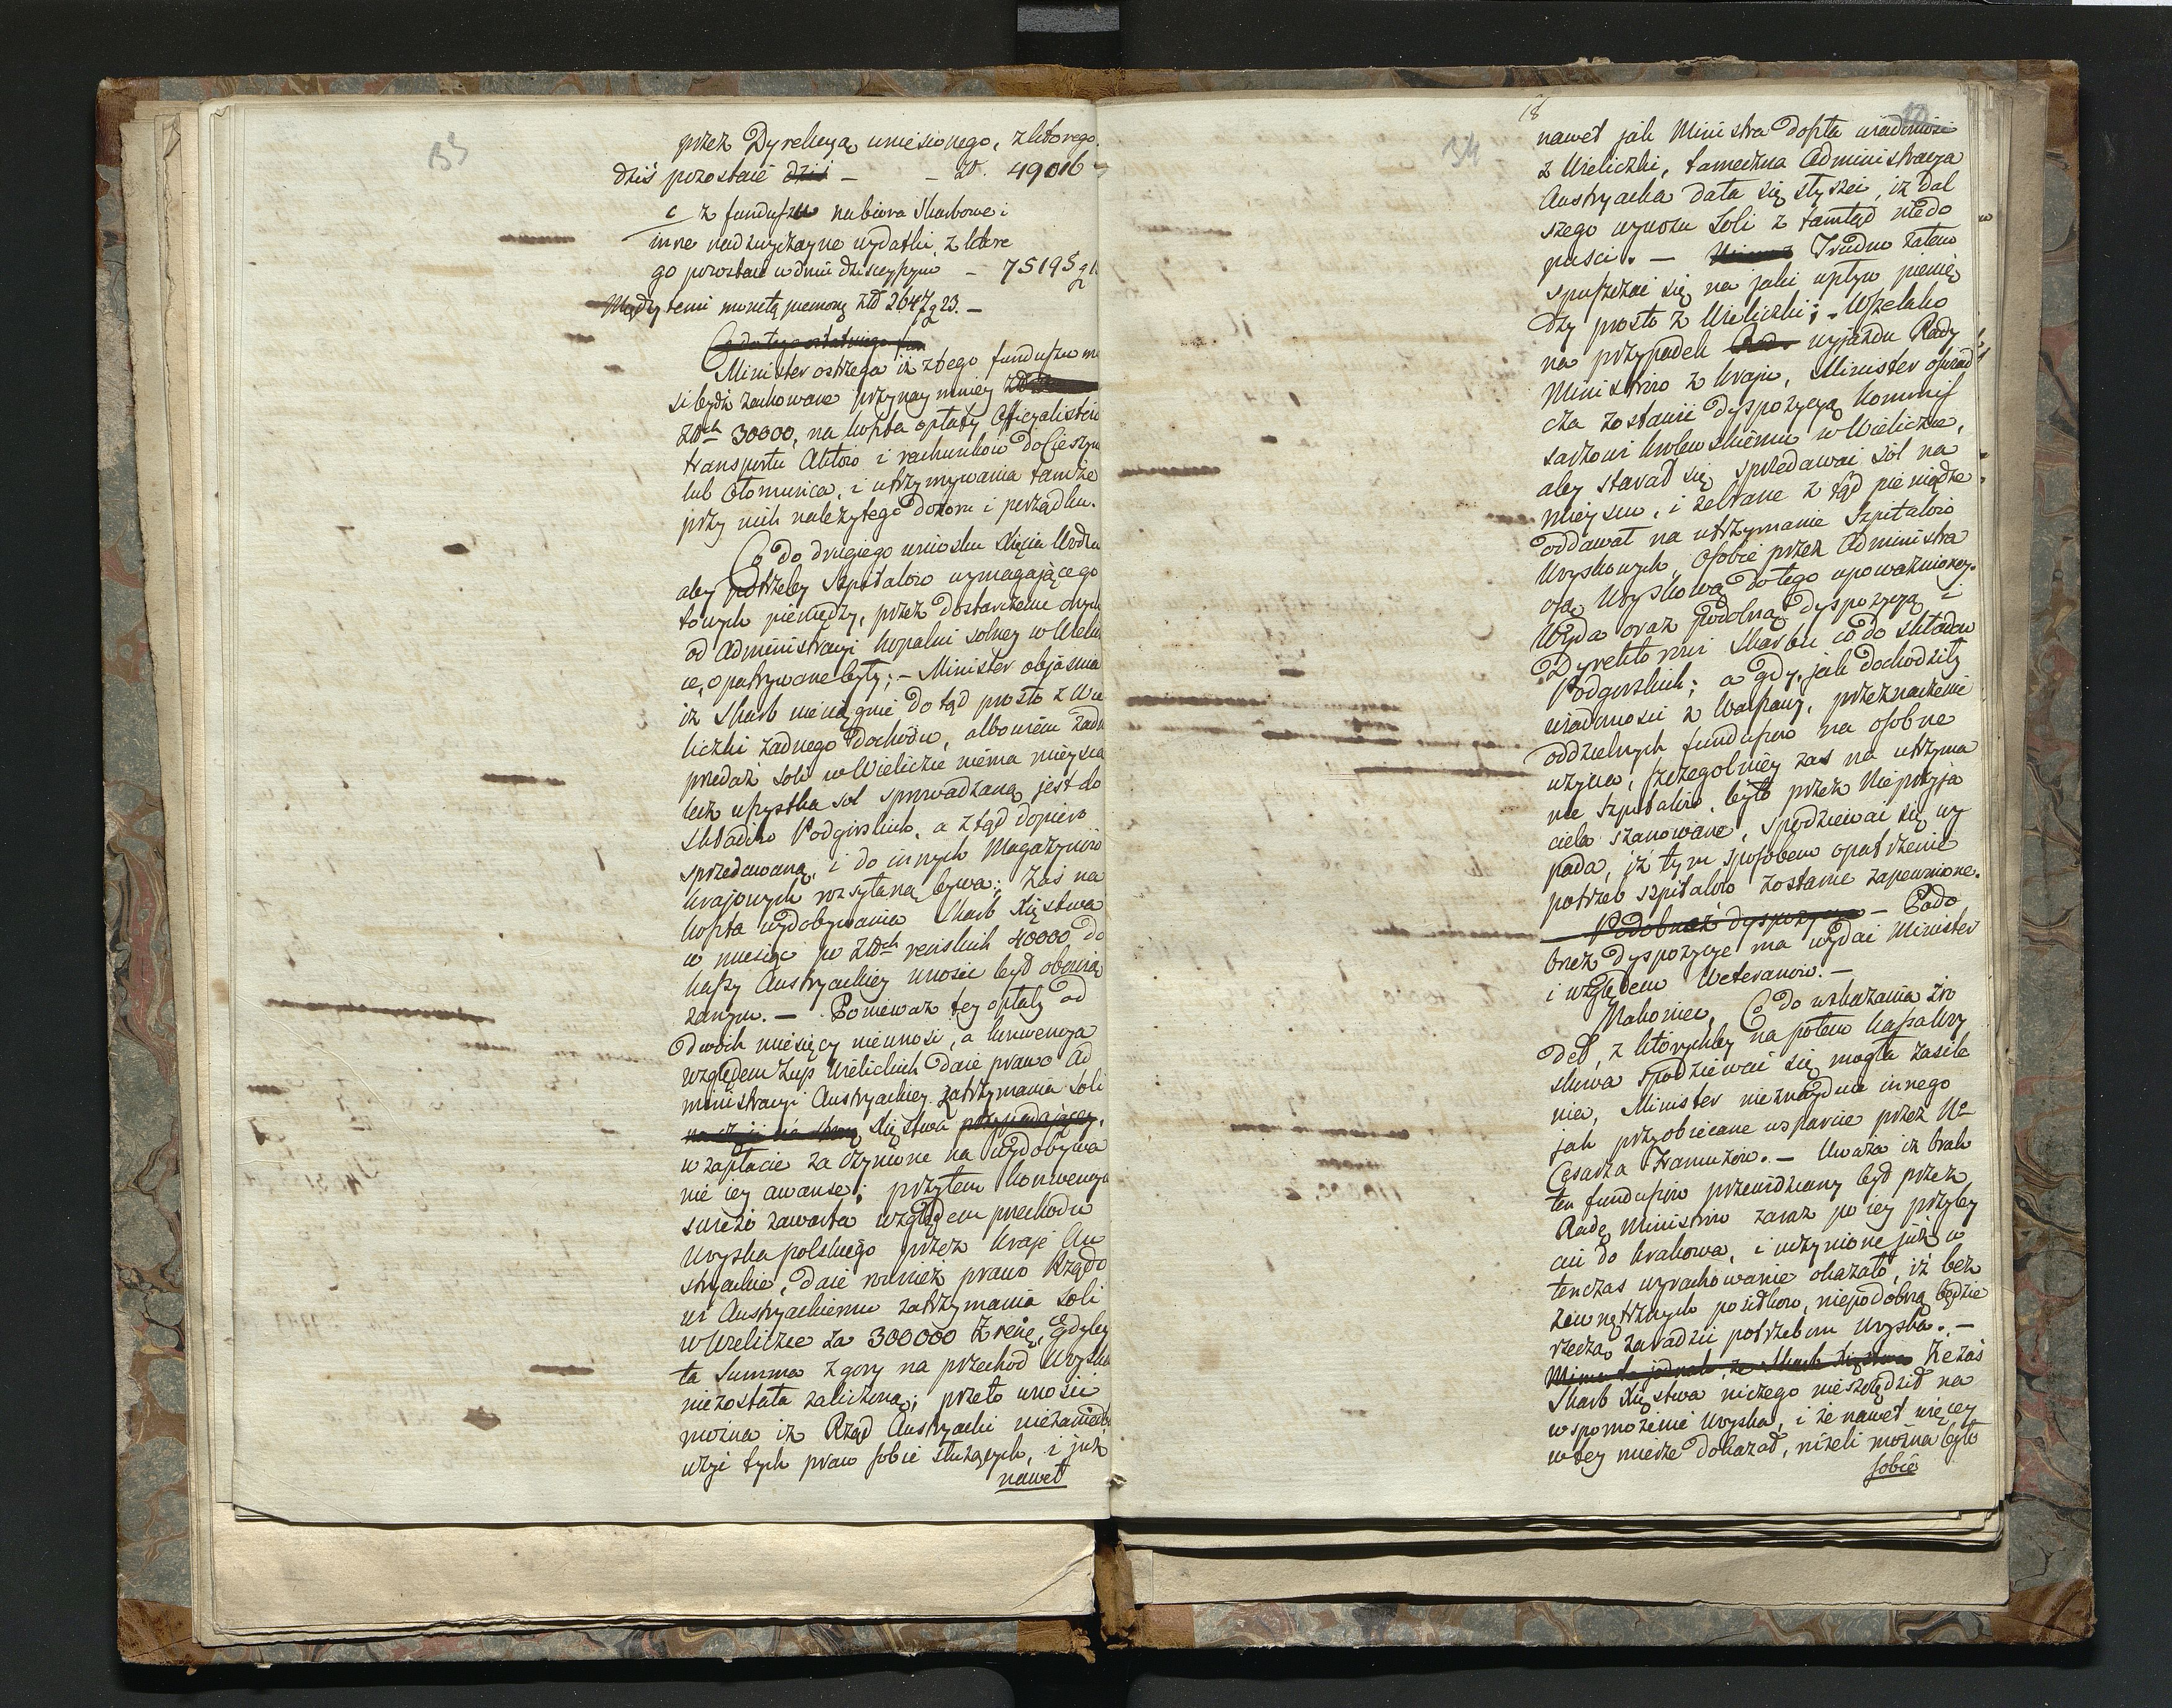 33
przez Dyrekcyą wniesionego, z ktorego
dziś pozostaie dziś - - zł. 49016
c z funduszu na biora Skarbowe i
inne nadzwyczayne wydatki, z ktore
go pozostaie w dniu dzisieyszym - 75195 g
Między temi monetą zł 2647 g 23. -
Co do tego ostatniego fun
Minister ostrzega iż z tego funduszu mu
si bydź zachowane przynaymniey
złch 30000, na koszta opłaty Officyalistów
transportu Aktow i rachunkow do Cieszyna
lub Ołomunca, i utrzymywania tamże
przy nich należytego dozoru i porządku.
Co do drugiego wniosku Xięcia Wodza
aby potrzeby Szpitalow wymagaiące go
towych pieniędzy, przez dostarczenie onych
od Administracyi kopalni solney w Wielicz
ce, opatrywane były; - Minister obiaśnia
iż Skarb nieciągnie dotąd prosto z Wie
liczki żadnego dochodu, albowiem żadna
przedaż soli w Wieliczce niema mieysca
lecz wszystka sol sprowadzaną jest do
składow Podgorskich, a ztąd dopiero
sprzedawaną, i do innych Magazynów
krajowych rozsyłaną bywa; Zaś na
koszta wydobywania Skarb Xięstwa
w miesiąc po złch reńskich 40000 do
kassy Austryackiey wnosić był obowią
zanym. - Ponieważ tey opłaty od
dwoch miesięcy niewnosi, a konwencya
względem Żup Wielickich daie prawo Ad
ministracyi Austryackiey zatrzymania soli
Xięstwa przypadaiącey,
w zapłacie za czynione na wydobywa
nie iey awanse; przytem konwencya
świeżo zawarta względem przechodu
Woyska polskiego przez kraje Au
stryackie, daie rownież prawo Rządo
wi Austryackiemu zatrzymania soli
w Wieliczce za 300000 Zł reń, gdyby
ta summa z gory na przechod Woyska
niezostała zaliczona; przeto wnosić
można iż Rząd Austryacki niezaniedba
użyć tych praw sobie służących, i już
nawet
18
34
nawet jak Ministra doszła wiadomość
z Wieliczki, tameczna Administracya
Austryacka dała się słyszeć, iż dal
szego wywozu soli z tamtąd niedo
puści. - Trudno zatem
spuszczać się na jaki wpływ pienię
dzy prosto z Wieliczki; - Wszelako
na przypadek wyjazdu Rady
Ministrow z kraju, Minister oświad
cza zostawić dyspozycyą Kommis
sarzowi krolewskiemu w Wieliczce,
aby starał się sprzedawać sol na
mieyscu, i zebrane z tąd pieniądze
oddawał na utrzymanie Szpitalow
Woyskowych, osobie przez Administra
cyą Woyskową do tego upoważnioney.
Wyda oraz podobną dyspozycyą i
Dyrektorowi Skarbu co do składow
Podgorskich; a gdy, jak dochodziły
wiadomości z Warszawy, przeznaczenie
oddzielnych funduszow na osobne
użycia, szczególniey zaś na utrzyma
nie Szpitalow, było przez Nieprzyja
ciela szanowane, spodziewać się wy
pada, iż tym sposobem opatrzenie
potrzeb szpitalow zostanie zapewnione.
Podobnąż dyspozycyą - Podo
bneż dyspozycye ma wydać Minister
i względem Weteranow. -
Nakoniec, Co do wskazania źro
deł, z ktorychby na potem kassa Xię
stwa spodziewać się mogła zasile
nia, Minister nieznayduie innego
jak przyobiecane wsparcie przez No
Cesarza Francuzow. - Uważa iż brak
ten funduszow przewidziany był przez
Radę Ministrow zaraz po iey przyby
ciu do Krakowa, i uczynione już w
tenczas wyrachowanie okazało, iż bez
zewnętrznych posiłkow, niepodobną będzie
rzeczą zaradzić potrzebom Woyska. -
Mimo to jednak, że Skarb Xięstwa Że zaś
Skarb Xięstwa niczego nieszczędził na
wspomożenie Woyska, i że nawet więcey
w tey mierze dokazał, niżeli można było
sobie